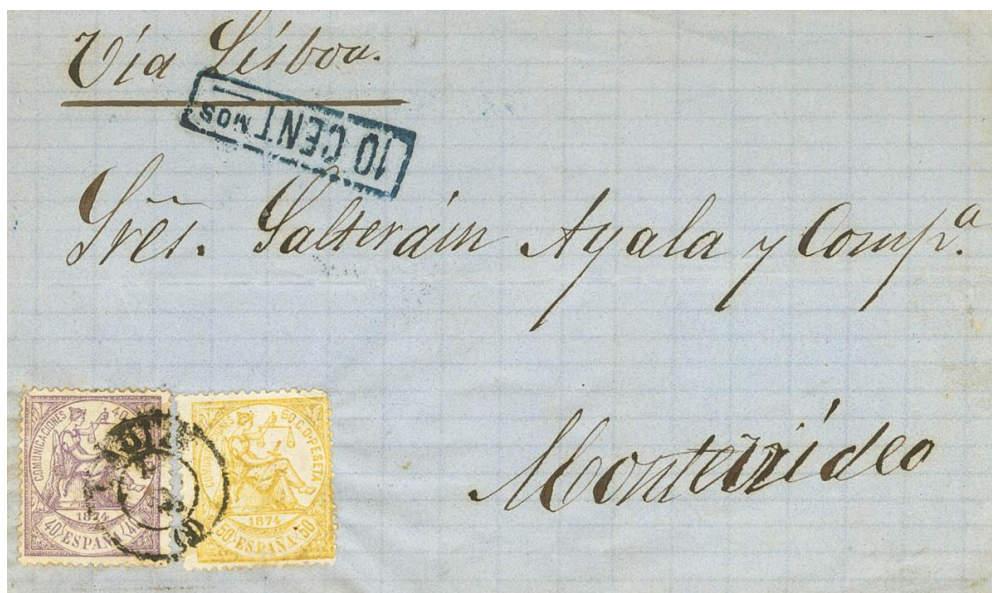 Vía Lisboa.
10 CENTMOS
Sres. Salteráin Ayala y Compª.
Montevideo
COMUNICACIONES 40
1874
40 ESPAÑA 40
50 C. DE PESETA
1874
50 ESPAÑA 50